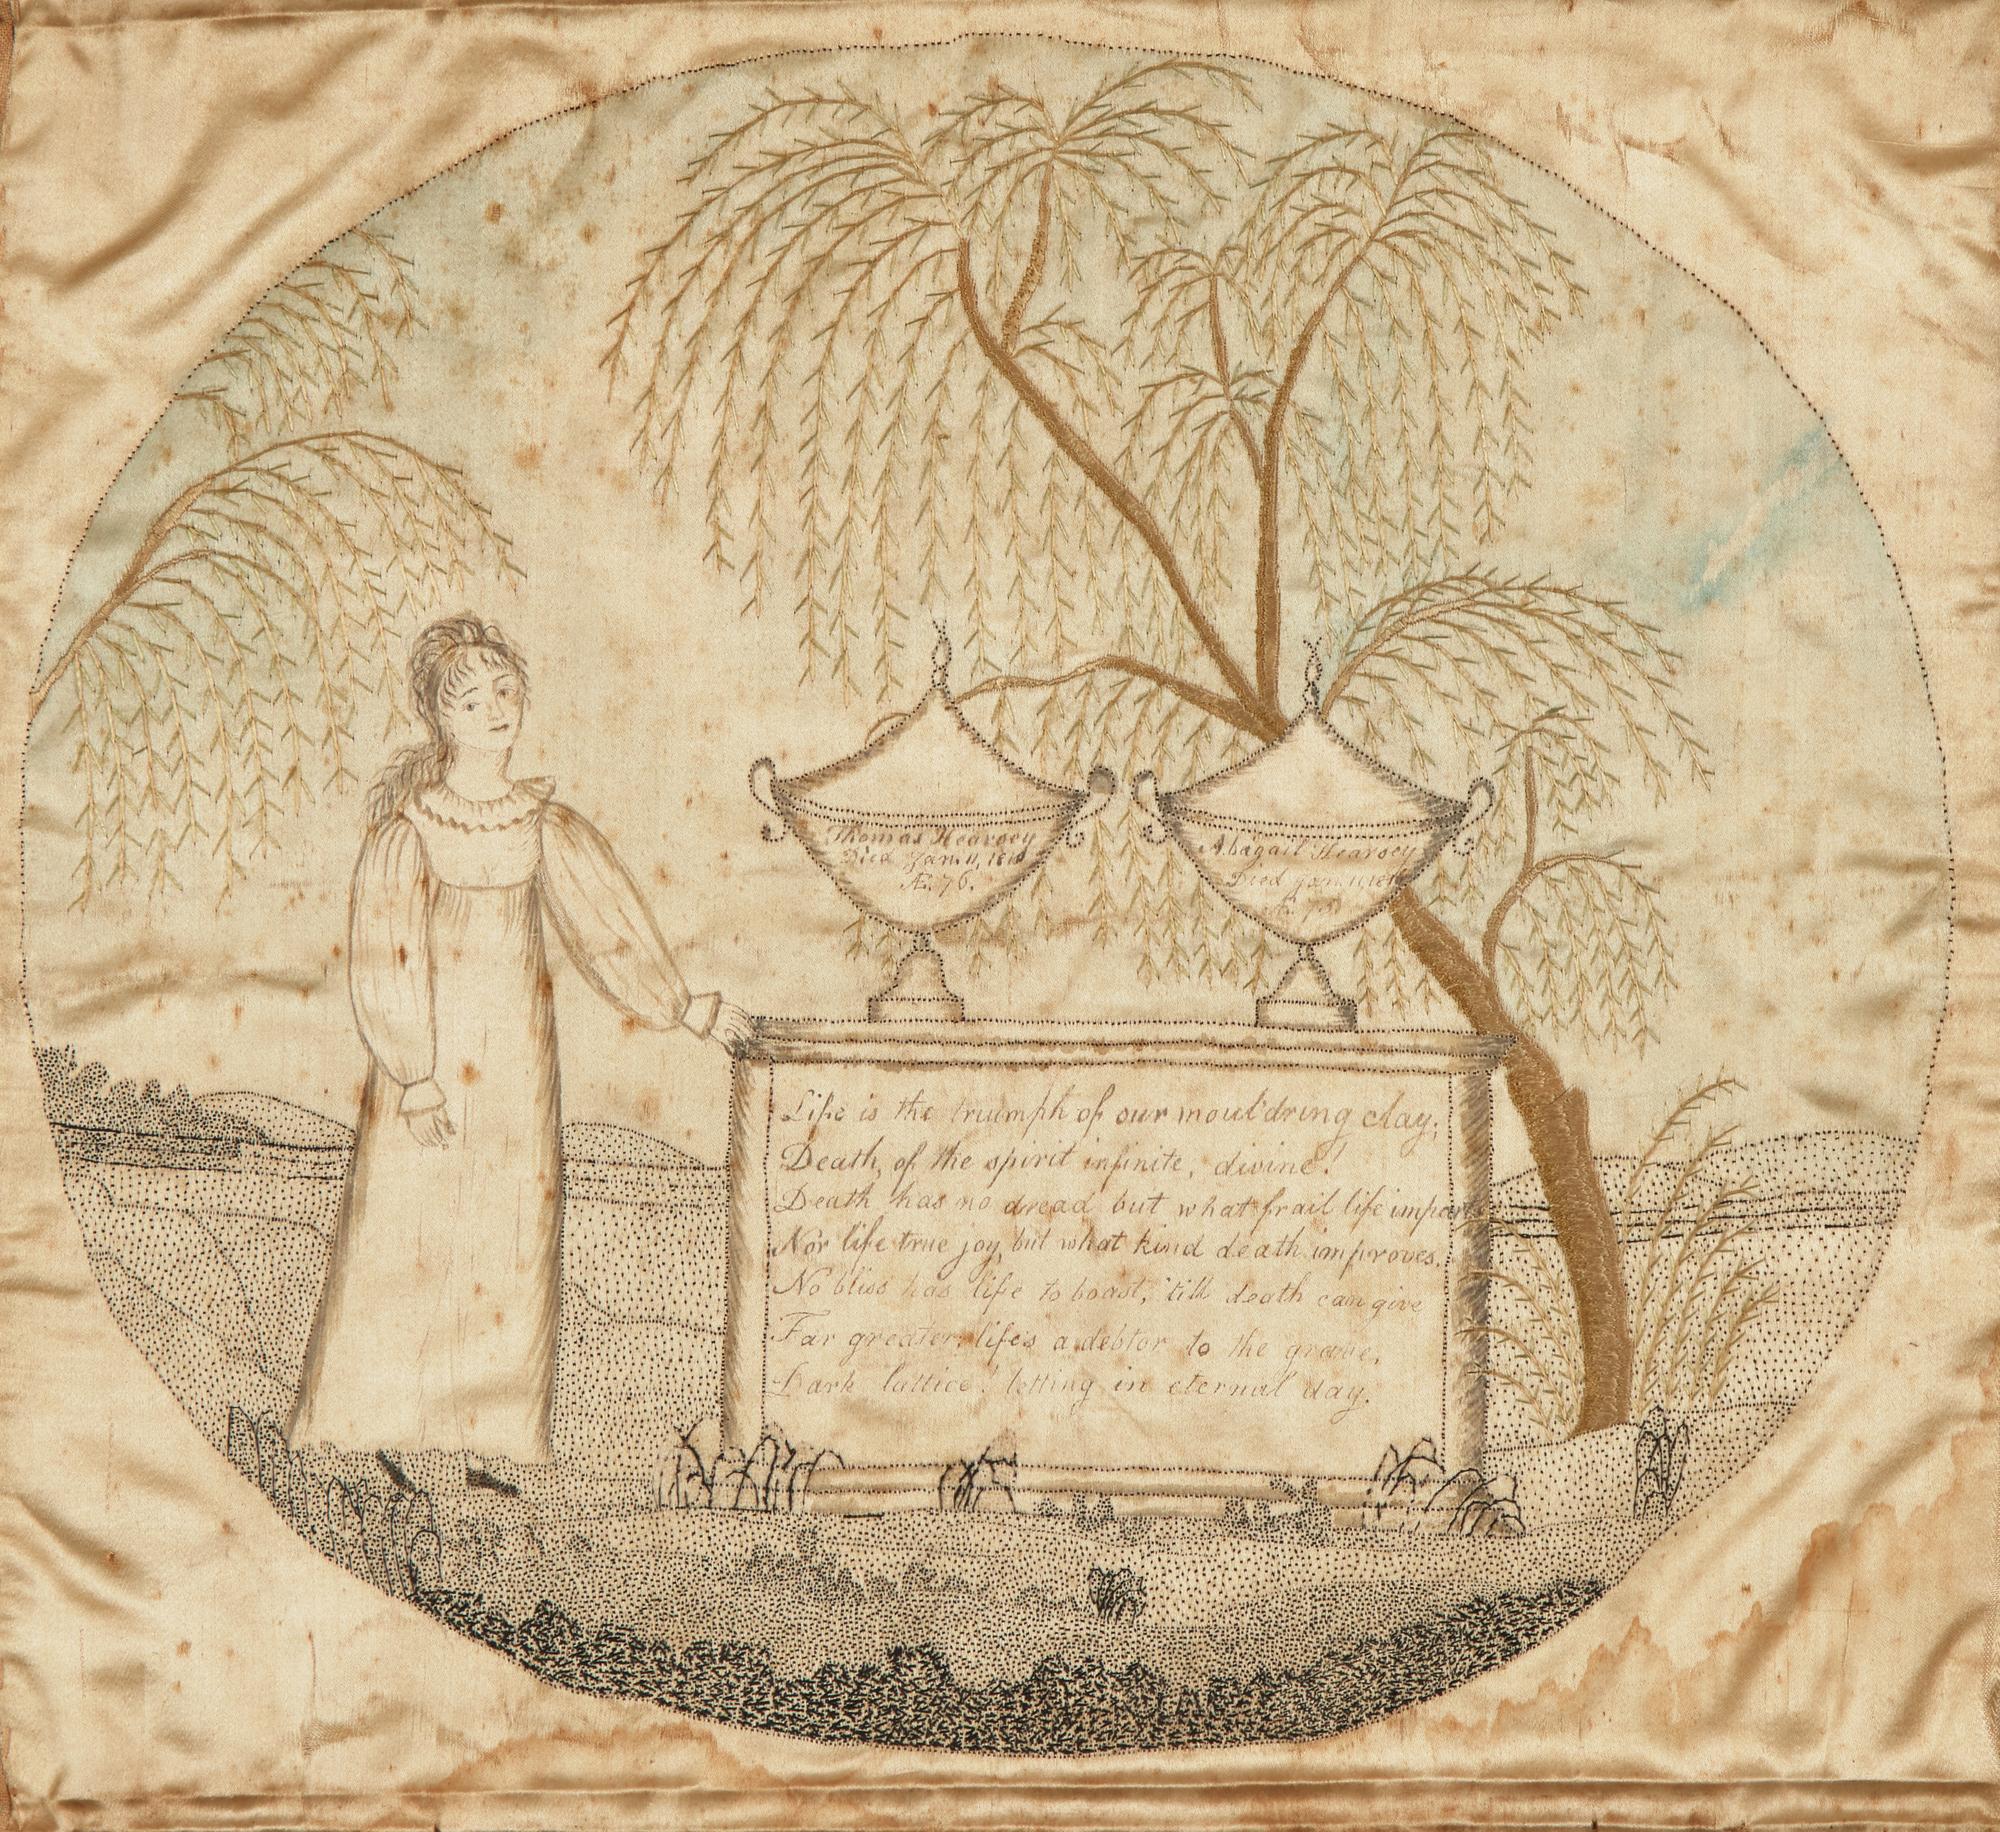 Thomas Hearsey
Died Jan. 11, 1810
Æ. 76.
Abagail Hearsey
Died Jan. 11, 181
Æ. 7
Life is the triumph of our mould'ring clay;
Death, of the spirit infinite, divine!
Death has no dread but what frail life imparts
Nor life true joy, but what kind death improves.
No bliss has life to boast, 'till death can give
Far greater; lifes a debtor to the grave,
Dark lattice! letting in eternal day.